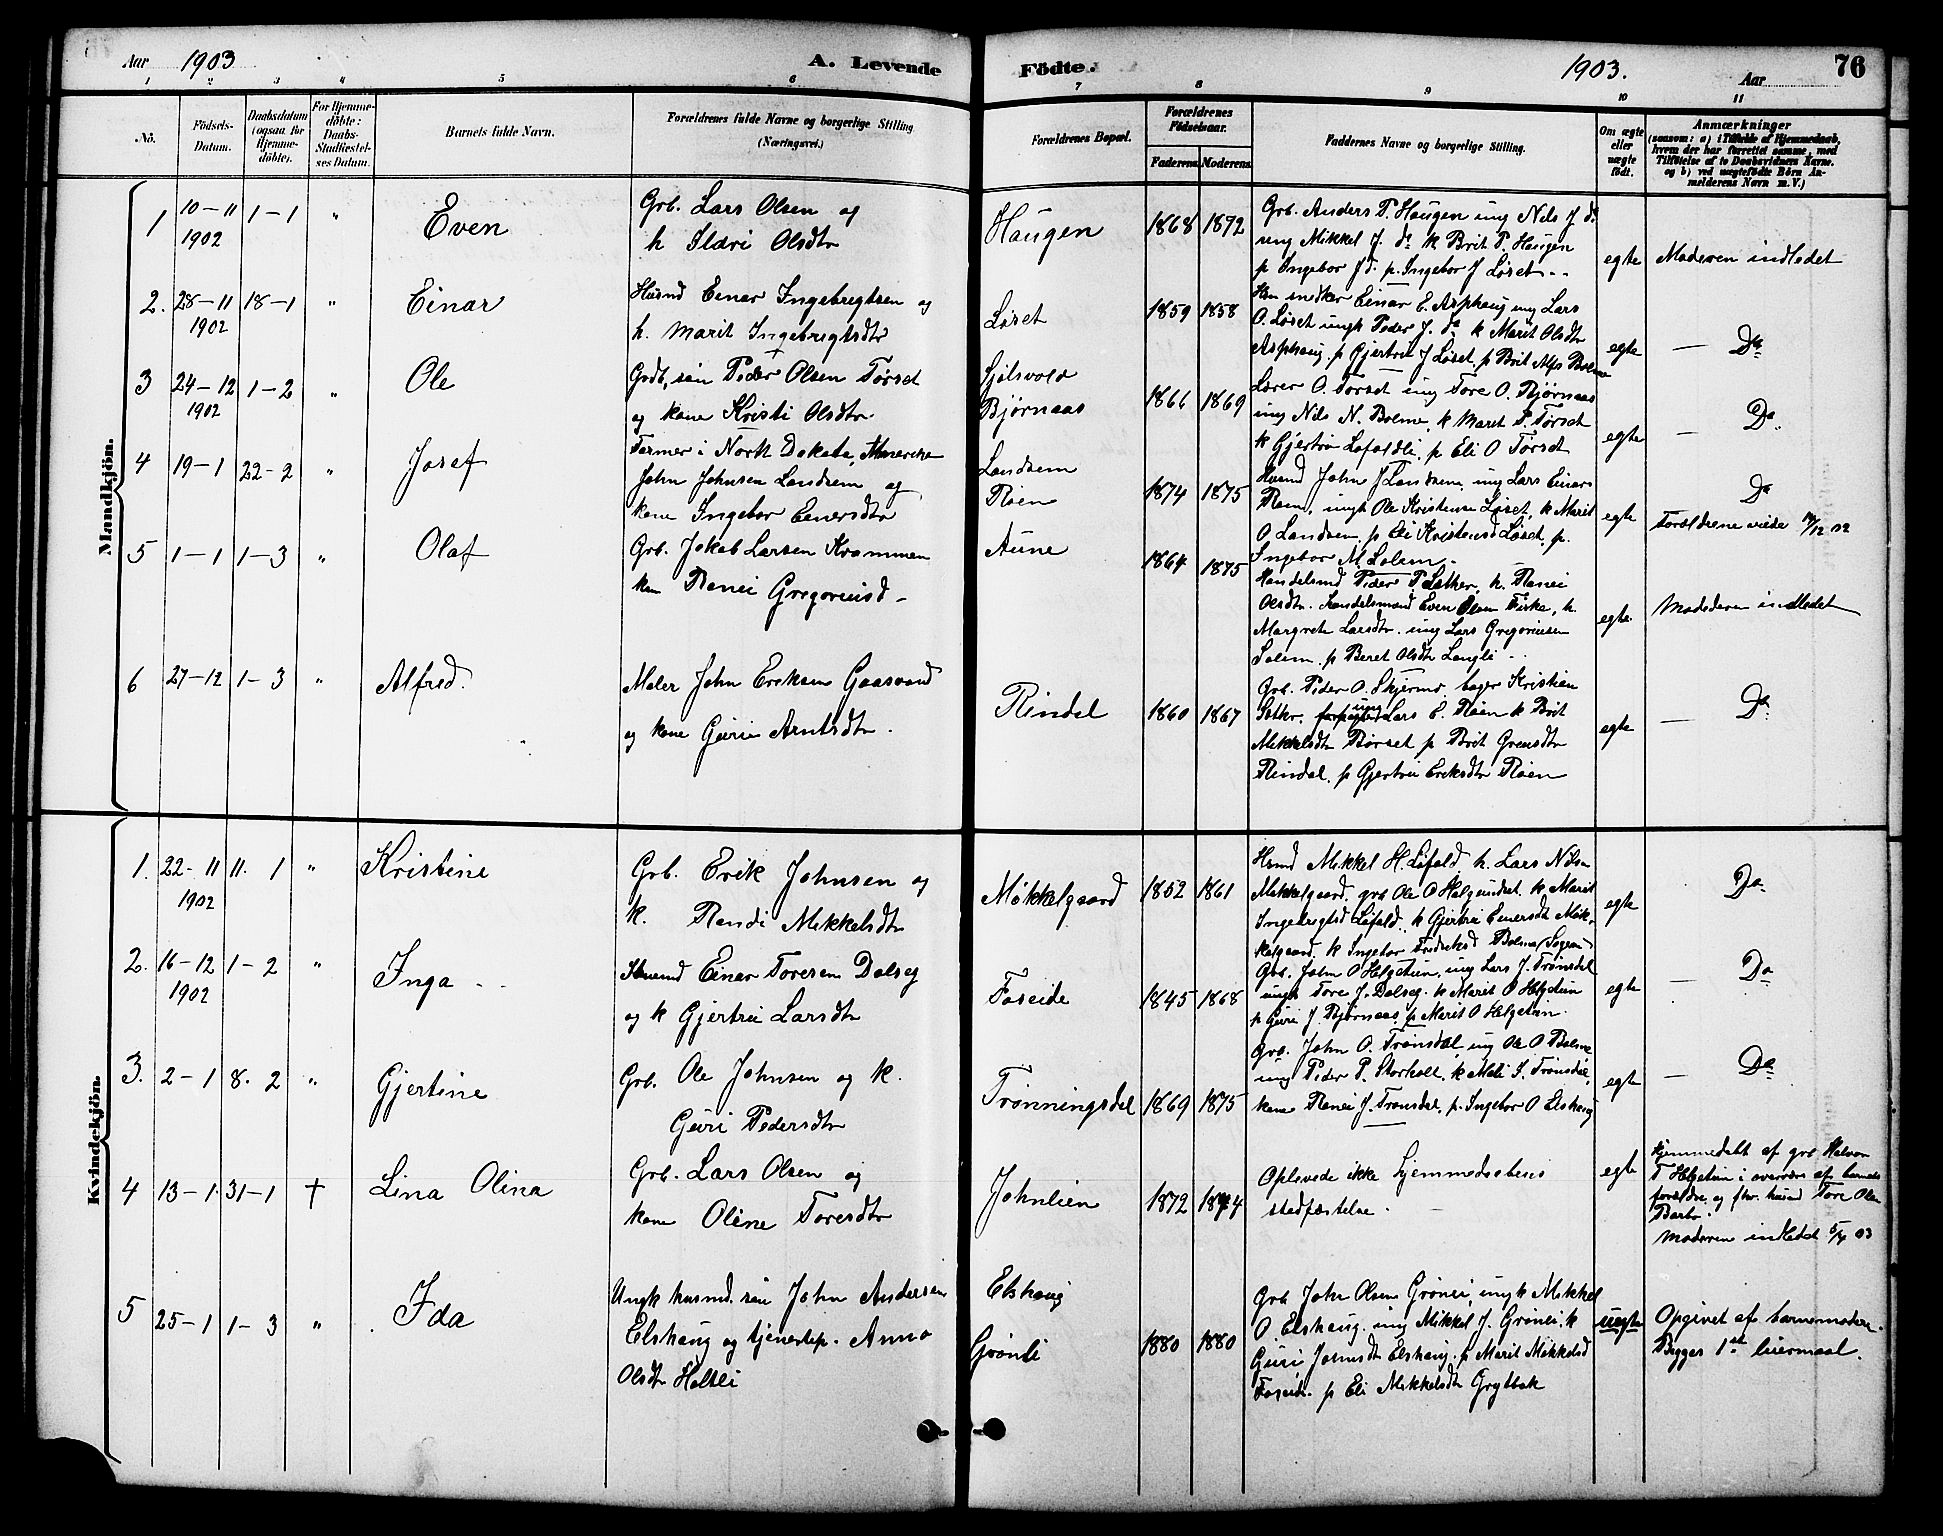 Aar 1903
A. Levende
Födte.
1903.
Aar
76
1 2 3 4 5 6 7 8 9 10 11
No.
Födsels-
Datum.
Daabsdatum
(ogsaa for
Hjemme-
döbte).
For Hjemme-
döbte:
Daabs-
Stadfæstel-
ses Datum.
Barnets fulde Navn.
Forældrenes fulde Navne og borgerlige Stilling
(Næringsvei.)
Forældrenes Bopæl.
Forældrenes
Födselsaar.
Faderens. Moderens.
Faddernes Navne og borgerlige Stilling.
Om ægte
eller
uægte
födt.
Anmærkninger
(saasom: a) i Tilfælde af Hjemmedaab,
hvem der har forrettet samme, med
Tilföielse af to Daabsvidners Navne.
og b) ved uægtefödte Börn An-
melderens Navn m. V.)
Mandkjön.
1
10-11
1902
1-1
"
Even
Grb. Lars Olsen og
h Ildri Olsdtr
Haugen
1868 1872
Grb. Anders P. Haugen ung Nils J do.
ung Mikkel J. do k Brit P. Haugen
p Ingebor J d. p. Ingebor J Løset - -
egte
Moderen indledet
2.
28-11
1902
18-1
"
Einar
Husmd Einar Ingebrigtsen og
h. Marit Ingebrigtsdtr
Løset
1859 1858
Hsm snedker Einar E. Asphaug ung Lars
O. Løset ungk Peder J. do k Marit Olsdtr
Asphaug. p Gjertru J Løset. p Brit Alfs Bolme
egte
— Do
3
24-12
1902
1-2
"
Ole
Grdb. søn Peder Olsen Tørset
og kone Kristi Olsdtr.
Sjølsvold
Bjørnaas
1866 1869
Lærer O. Tørset ung Tore O. Bjørnaas
ung Nils N. Bolme, k Marit P. Tørset
k Gjertru Løfaldli, p Eli O Tørset
egte
— Do.
4
19-1
22-2
"
Josef
Farmer i North Dakota, Amerika
John Johnsen Landsem og
kone Ingebor Einersdtr
Landsem
Røen
1874 1875
Husmd John J Landsem, ung Lars Einars
Røen, ungk Ole Kristensen Løset, k Marit
O Landsem, p Eli Kristensd Løset, p.
Ingebor M Solem -
egte
Do
Forældrene viede 14/12 02
5
1-1
1-3
"
Olaf
Grb. Jakob Larsen Krommen
kon Ranei Gregoriusd -
Aune
1864 1875
Handelsmd Peder P Sæther, h. Ranei
Olsdtr. Handelsmand Even Olsen Kirke, h.
Margrete Larsdtr. ung Lars Gregoriusen
Solem. p Beret Olsdtr Langli - -
egte.
Moderen indledet
6
27-12
1-3
"
Alfred.
Maler John Eriksen Gaasvand
og kone Guri Arntsdtr.
Rindal
1860 1867
Grb. Peder O. Skjermo, bager Kristian
Sæthr. ung Lars E. Røen k Brit
Mikkelsdtr Børset p Brit
Rindal. p Gjertru Eriksdtr Røen
egte
— Do.
Kvindekjön.
1.
22-11
1902
11. 1
"
Kristine
Grb. Erik Johnsen og
k. Randi Mikkelsdtr
Mikkelgaard
1852 1861
Husmd Mikkel H. Løfald h. Lars Nilsn
Mikkelgaard. grb Ole O Helgetunet. k Marit
Ingebrigtsd Løfald. k Gjertru Einersdt Mik-
kelgaard k Ingebor Fredriksd Bolme
egte
Do.
2.
16-12
1902
1-2
"
Inga - -
Husmd Einar Toresen Dalseg
og k Gjertru Larsdtr
Foseide
1845 1868
Grb. John O Helgetun, ung Lars J. Trønsdal
ungk Tore J. Dalseg. k Marit O Helgetun
k Guri J. Bjørnaas p Marit O Helgetun.
egte
— Do
3.
2-1
8. 2
"
Gjertine
Grb. Ole Johnsen og k.
Guri Pedersdtr
Trønningsdal
1869 1875
Grb. John O. Trønsdal ung Ole O Bolme
ung Peder P. Storholt, k Mali S. Trønsdal,
kone Ranei J. Trønsdal, p. Ingebor O Elshaug
egte
— Do
4
13-1
31-1
†
Lina Olina
Grb. Lars Olsen og
kone Oline Toresdtr
Johnlien
1872 1874
Oplevede ikke hjemmedaabens
stadfæstelse. -
egte
Hjemmedøbt af grb Halvor
T Helgetun i overvær af barnets
forældre og fhv. husmd Tore Olsen
Barbo.
Moderen indledet 5/4 03
5
25-1
1-3
"
Ida
Ungk husmd. søn John Andersen
Elshaug og tjenestep. Anna
Olsdtr Holtli
Elshaug
Grønli
1880 1880
Grb John Olsen Grønli, ungk Mikkel
O. Elshaug. ung Mikkel J. Grønli. k
Guri Johnsdtr Elshaug. p Marit Mikkelsd
Foseide. p Eli Mikkelsdtr Grytbak
uegte
Opgivet af barnemoder.
Begges 1ste leiermaal.